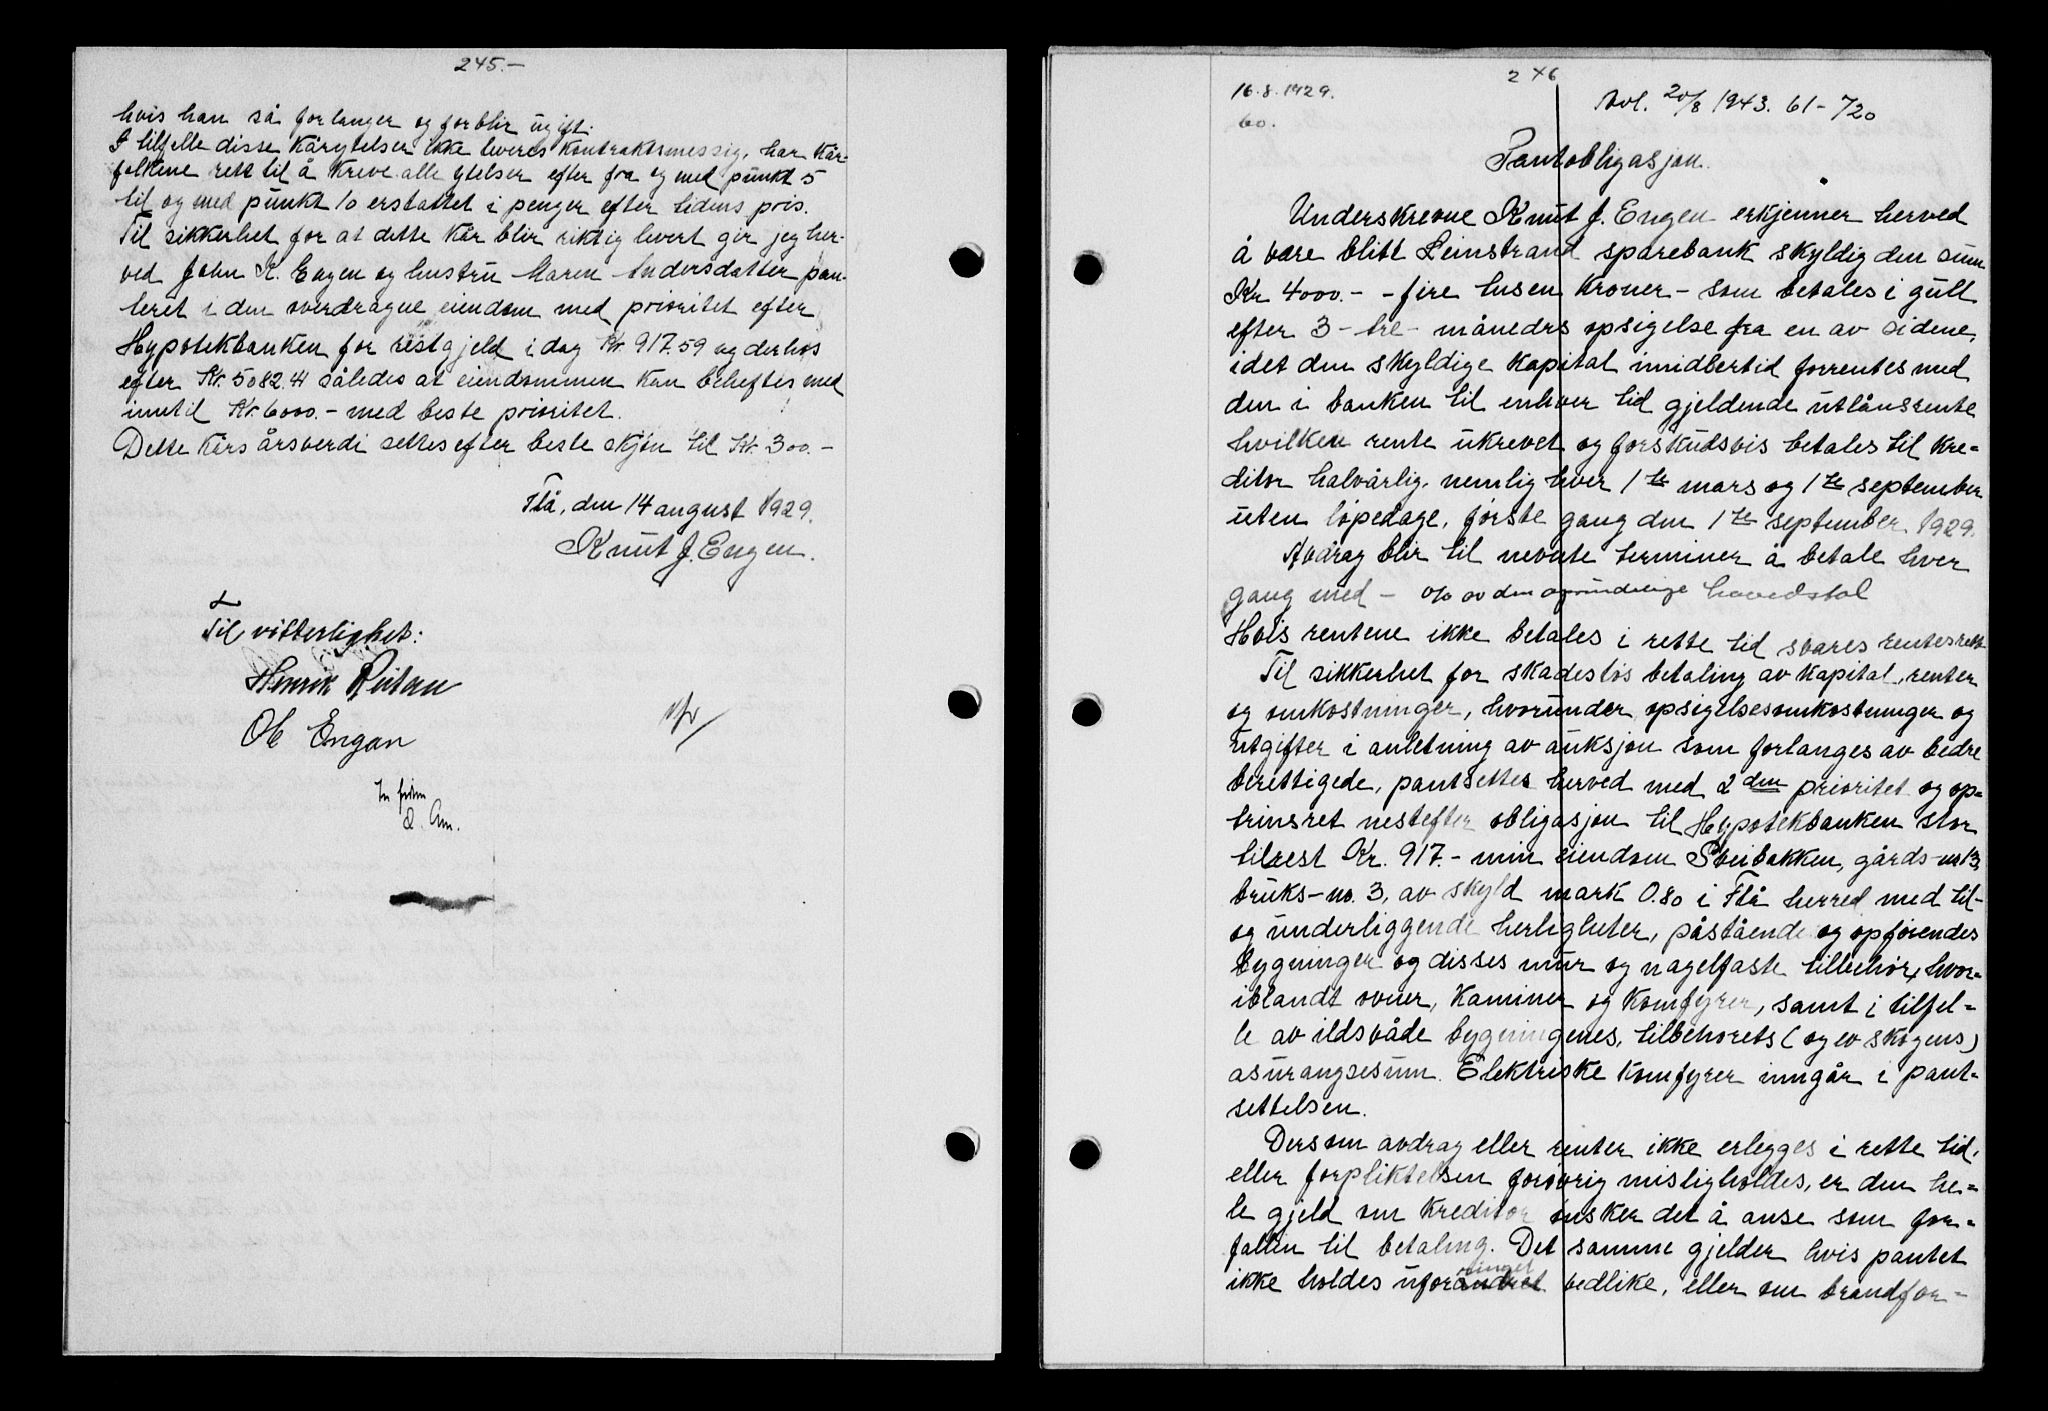 245.-
hvis han så forlanger og forblir ugift.
I tilfelle disse kårytelser ikke leveres kontraktsmessig, har kår-
folkene rett til å kreve alle ytelser efter fra og med punkt 5
til og med punkt 10 erstattet i penger efter tidens pris.
Til sikkerhet for at dette kår blir riktig levert gir jeg her-
ved John K. Engen og hustru Maren Andersdatter pan-
teret i den overdragne eiendom med prioritet efter
Hypotekbanken for restgjeld i dag Kr. 917.59 og derhos
efter Kr. 5082.41 således at eiendommen kan beheftes med
inntil Kr. 6000.- med beste prioritet.
Dette kårs årsverdi settes efter beste skjøn til Kr. 300.-
Flå, den 14 august 1929.
Knut J. Engen.
Til vitterlighet:
Henrik Reitan
Ole Engan
246
16.8.1929.
60.
Avl. 20/8 1943. 61-720
Pantobligasjon.
Underskrevne Knut J. Engen erkjenner herved
å være blitt Leinstrand sparebank skyldig den sum
Kr 4000.- - fire tusen kroner - som betales i gull
efter 3 - tre - måneders opsigelse fra en av sidene,
idet den skyldige kapital imidlertid forrentes med
den i banken til enhver tid gjeldende utlånsrente
hvilken rente ukrevet og forskudsvis betales til kre-
ditor halvårlig, nemlig hver 1ste mars og 1ste september
uten løpedage, første gang den 1ste september 1929.
Avdrag blir til nevnte terminer å betale hver
gang med - o/o av den oprindelige hovedstol
Hvis rentene ikke betales i rette tid svares rentesrente
Til sikkerhet for skadesløs betaling av kapital, renter
og omkostninger, hvorunder opsigelsesomkostninger og
utgifter i anledning av auksjon som forlanges av bedre
berettigede, pantsettes herved med 2den prioritet og op-
trinsret nestefter obligasjon til Hypotekbanken stor
tilrest Kr. 917.- min eiendom Sveibakken, gårds-nr 13,
bruks-no. 3, av skyld mark 0.80 i Flå herred med til-
og underliggende herligheter, påstående og opførendes
bygninger og disses mur og nagelfaste tilbehør, hvor-
iblandt ovner, kaminer og komfyrer, samt i tilfel-
le av ildsvåde bygningenes, tilbehørets (og ev skogens)
asurangsesum. Elektriske komfyrer inngår i pant-
settelsen.
Dersom avdrag eller renter ikke erlegges i rette tid,
eller forpliktelsen forøvrig misligholdes, er den he-
le gjeld om kreditor ønsker det å anse som for-
fallen til betaling. Det samme gjelder hvis pantet
ikke holdes uforandret vedlike, eller om brandfor-